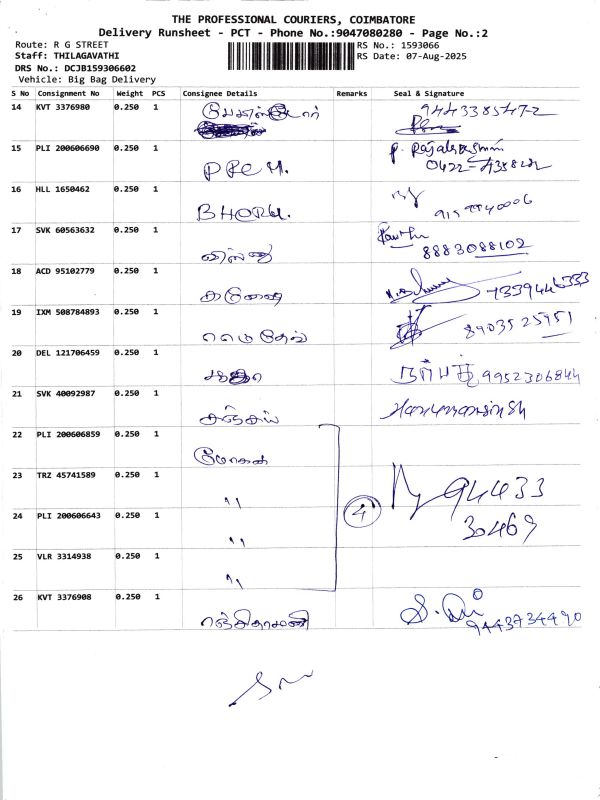 THE PROFESSIONAL COURIERS, COIMBATORE
Delivery Runsheet - PCT - Phone No.:9047080280 - Page No.:2
Route: R G STREET
RS No.: 1593066
Staff: THILAGAVATHI
RS Date: 07-Aug-2025
DRS No.: DCJB159306602
Vehicle: Big Bag Delivery
S No Consignment No Weight PCS Consignee Details Remarks Seal & Signature
14 KVT 3376980 0.250 1 9443385472
15 PLI 200606690 0.250 1 PREM. P. Rajalakshmi
0422-4358212
16 HLL 1650462 0.250 1
17 SVK 60563632 0.250 1 8883088102
18 ACD 95102779 0.250 1 கருணை 7339446333
19 IXM 508784893 0.250 1 8903525951
20 DEL 121706459 0.250 1 9952306844
21 SVK 40092987 0.250 1 சஞ்சய் Hanumansingh
22 PLI 200606859 0.250 1 மோகன்
23 TRZ 45741589 0.250 1 " 94433
24 PLI 200606643 0.250 1 " 4 30469
25 VLR 3314938 0.250 1 "
26 KVT 3376908 0.250 1 9443734490